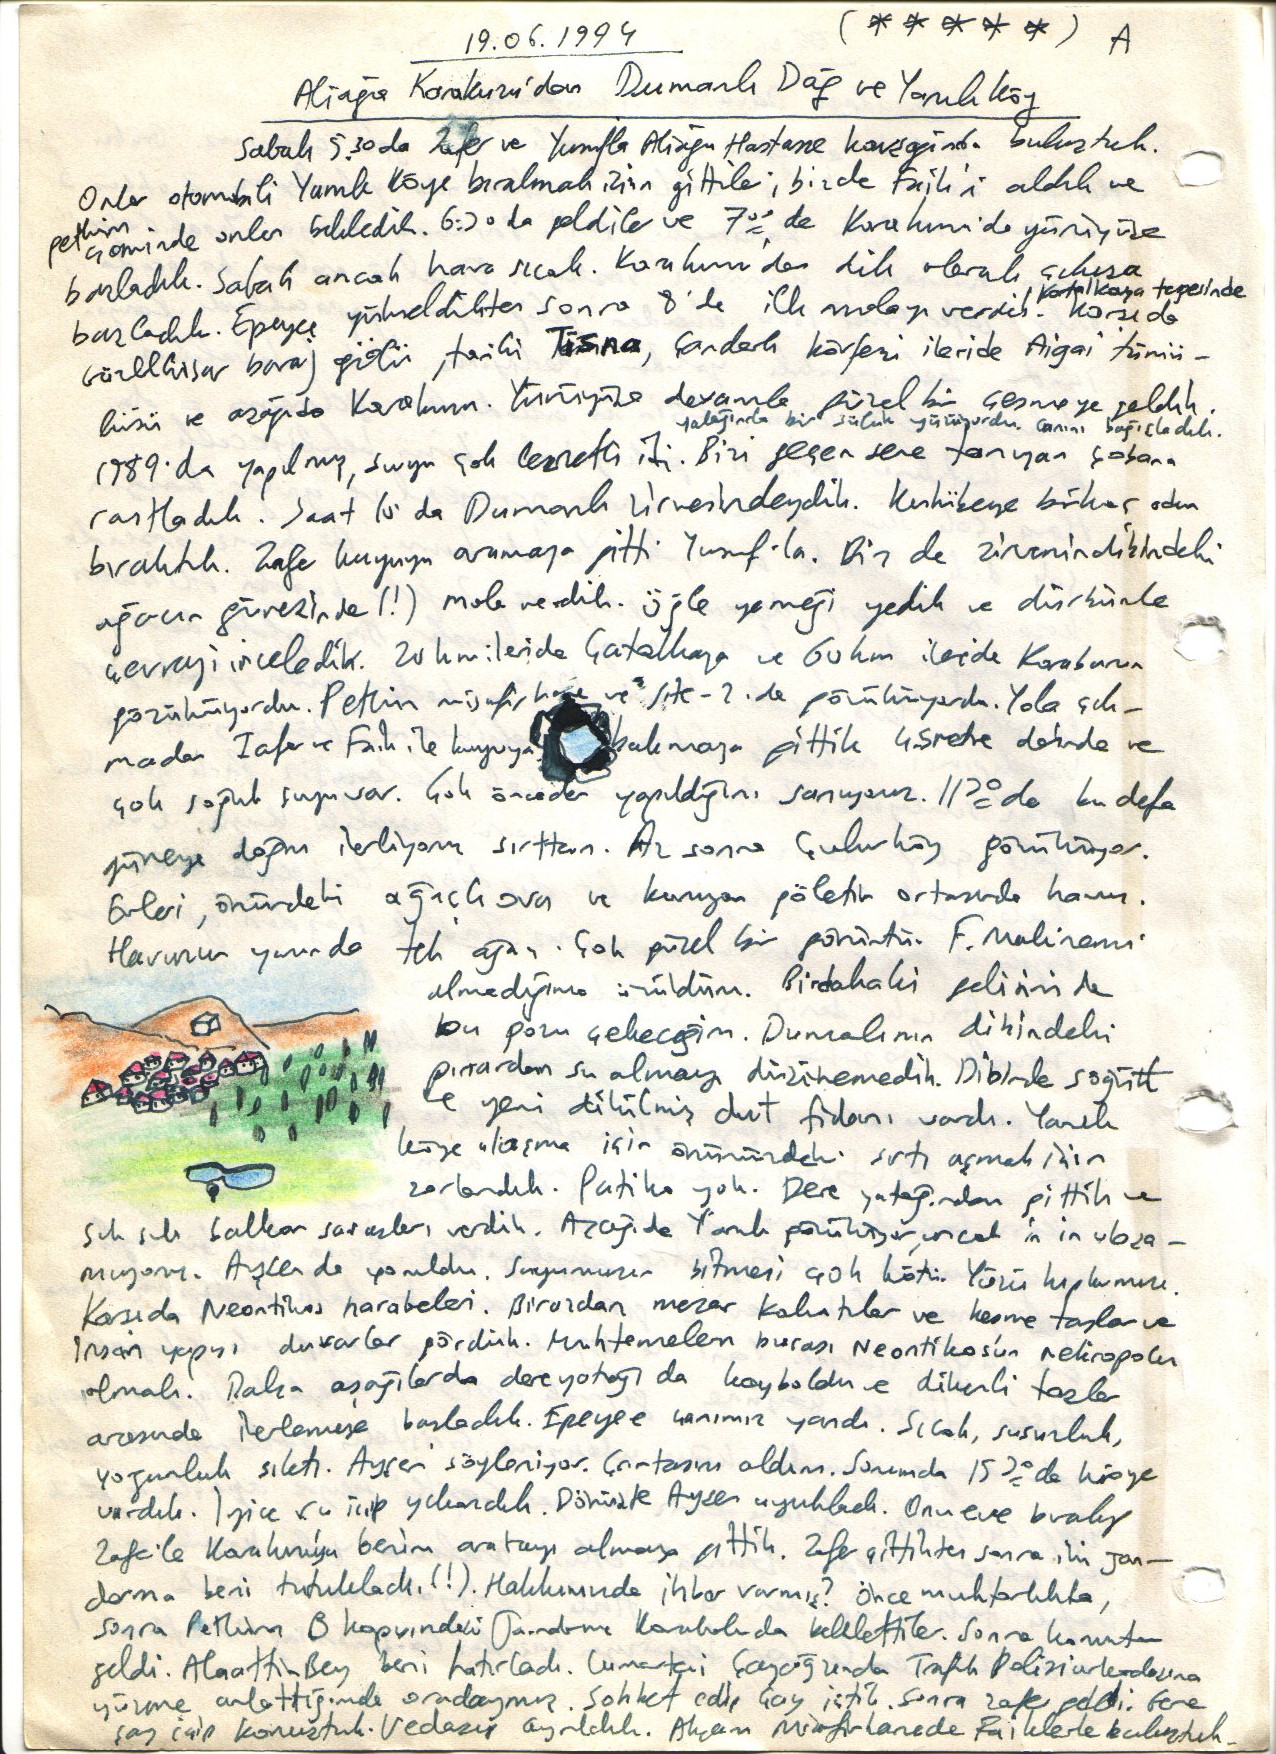 19.06.1994
( * * * * * ) A
Aliağa Karakuzu'dan Dumanlı Dağ ve Yanıkköy
Sabah 5.30 da Zafer ve Yusufla Aliağa Hastane kavşağında buluştuk.
Onlar otomobili Yanık Köye bırakmak için gittiler, biz de Faik'i aldık ve
petkim
camiinde onları bekledik. 6:30 da geldiler ve 7⁰⁰ de Karakuzu'da yürüyüşe
başladık. Sabah ancak hava sıcak. Karakuzu'dan dik olarak çıkışa
başladık. Epeyce yükseldikten sonra 8'de ilk molayı verdik. Karşıda
Kartalkaya tepesinde
Güzelhisar baraj gölü, tarihi Tisna, Çandarlı körfezi ileride Aigai tümü-
lüsü ve aşağıda Karakuzu. Yürüyüşe devamla güzel bir çeşmeye geldik.
yalağında bir sülük yüzüyordu. canını bağışladık.
1989'da yapılmış, suyu çok lezzetli idi. Bizi geçen sene tanıyan çobana
rastladık. Saat 10 da Dumanlı zirvesindeydik. Kulübeye birkaç odun
bıraktık. Zafer kuyuyu aramaya gitti Yusuf'la. Biz de zirvenin dibindeki
ağacın gölgesinde (!) mola verdik. öğle yemeği yedik ve dürbünle
çevreyi inceledik. 20 km ileride Çatalkaya ve 60 km ileride Karaburun
gözüküyordu. Petkim misafirhane ve site-2 de görünüyordu. Yola çık-
madan Zafer ve Faik ile kuyuya bakmaya gittik 4,5 metre derinde ve
çok soğuk suyu var. Çok önceden yapıldığını sanıyoruz. 11³⁰ da bu defa
güneye doğru ilerliyoruz sırttan. Az sonra Çukurköy görünüyor.
Evleri, önündeki ağaçlı ova ve kuruyan göletin ortasında havuz.
Havuzun yanında tek ağaç. Çok güzel bir görüntü. F. Makinamı
almadığıma üzüldüm. Bir dahaki gelişimde
bu pozu çekeceğim. Dumanlının dibindeki
pınardan su almayı düşünemedik. Dibinde söğüt
ve yeni dikilmiş dut fidanı vardı. Yanık
köye ulaşma için önümüzdeki sırtı aşmak için
zorlandık. Patika yok. Dere yatağından gittik ve
sık sık balkan savaşları verdik. Aşağıda Yanık görünüyor, ancak in in ulaşa-
mıyoruz. Ayşen de yoruldu. Suyumuzun bitmesi çok kötü. Yüzü kıpkırmızı.
Karşıda Neontikos harabeleri. Birazdan mezar kalıntılar ve kesme taşlar ve
insan yapısı duvarlar gördük. Muhtemelen burası Neontikos'un nekropolu
olmalı. Daha aşağılarda dere yatağı da kayboldu ve dikenli taşlar
arasında ilerlemeye başladık. Epeyce canımız yandı. Sıcak, susuzluk,
yorgunluk sıktı. Ayşen söyleniyor. Çantasını aldım. Sonunda 15³⁰ da köye
vardık. İyice su içip yıkandık. Dönüşte Ayşen uyukladı. Onu eve bırakıp
Zaferle Karakuzuya benim arabayı almaya gittik. Zafer gittikten sonra iki jan-
darma beni tutukladı.(!). Hakkımızda ihbar varmış? Önce muhtarlıkta,
sonra Petkim B kapısındaki Jandarma Karakolunda beklettiler. Sonra komutan
geldi. Alaattin Bey beni hatırladı. Cumartesi Çayağzında Trafik Polisi arkadaşına
yüzme anlattığımda oradaymış. Sohbet edip çay içtik. Sonra zafer geldi. Gene
çay içip konuştuk. Vedalaşıp ayrıldık. Akşam Misafirhanede Faiklerle buluştuk.